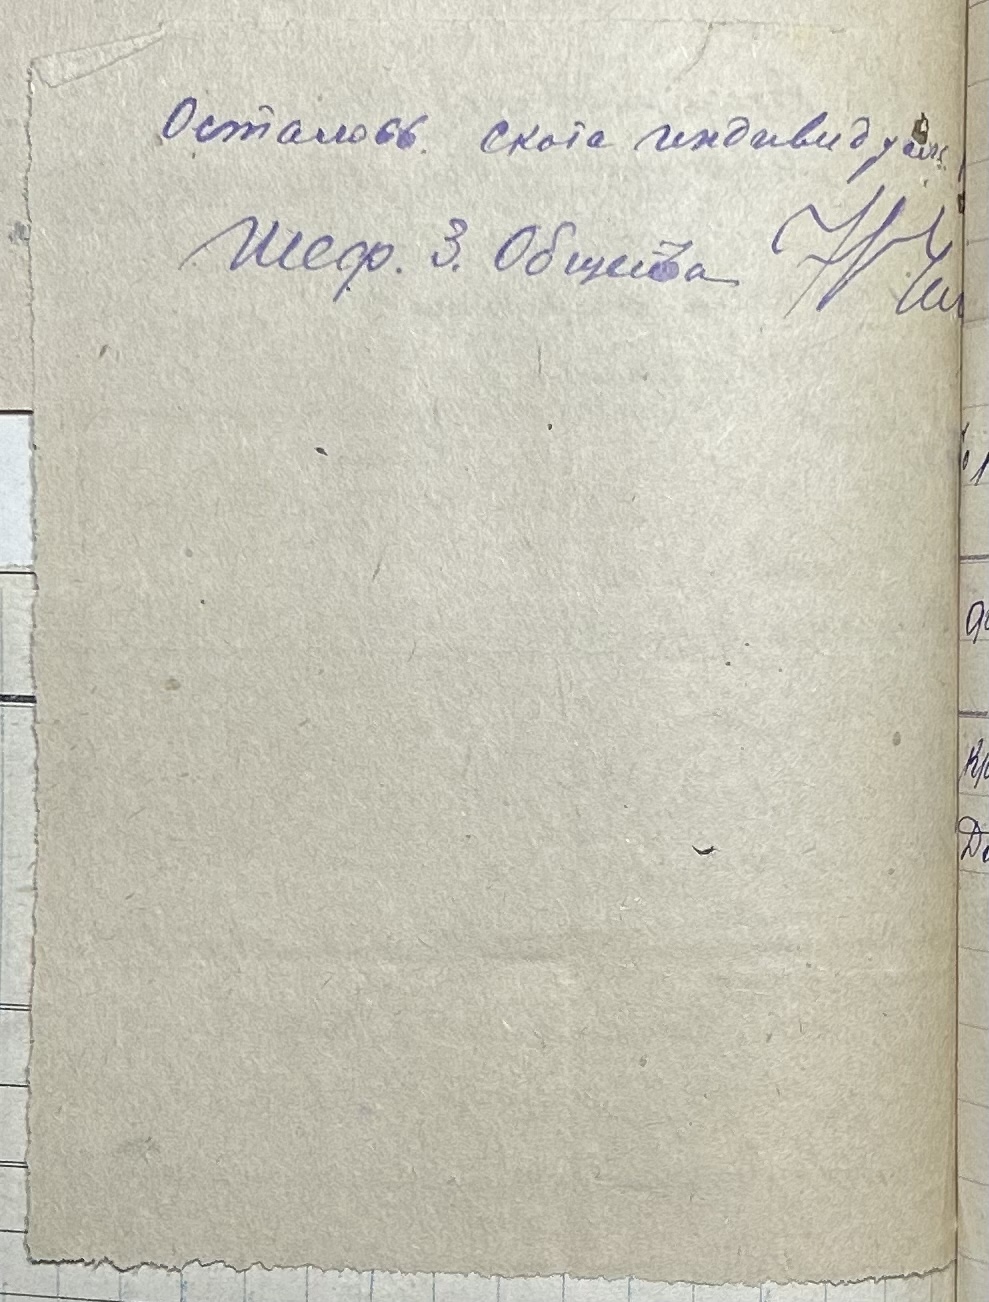 Осталось скота индивидуальн.
Шеф. З. Общества